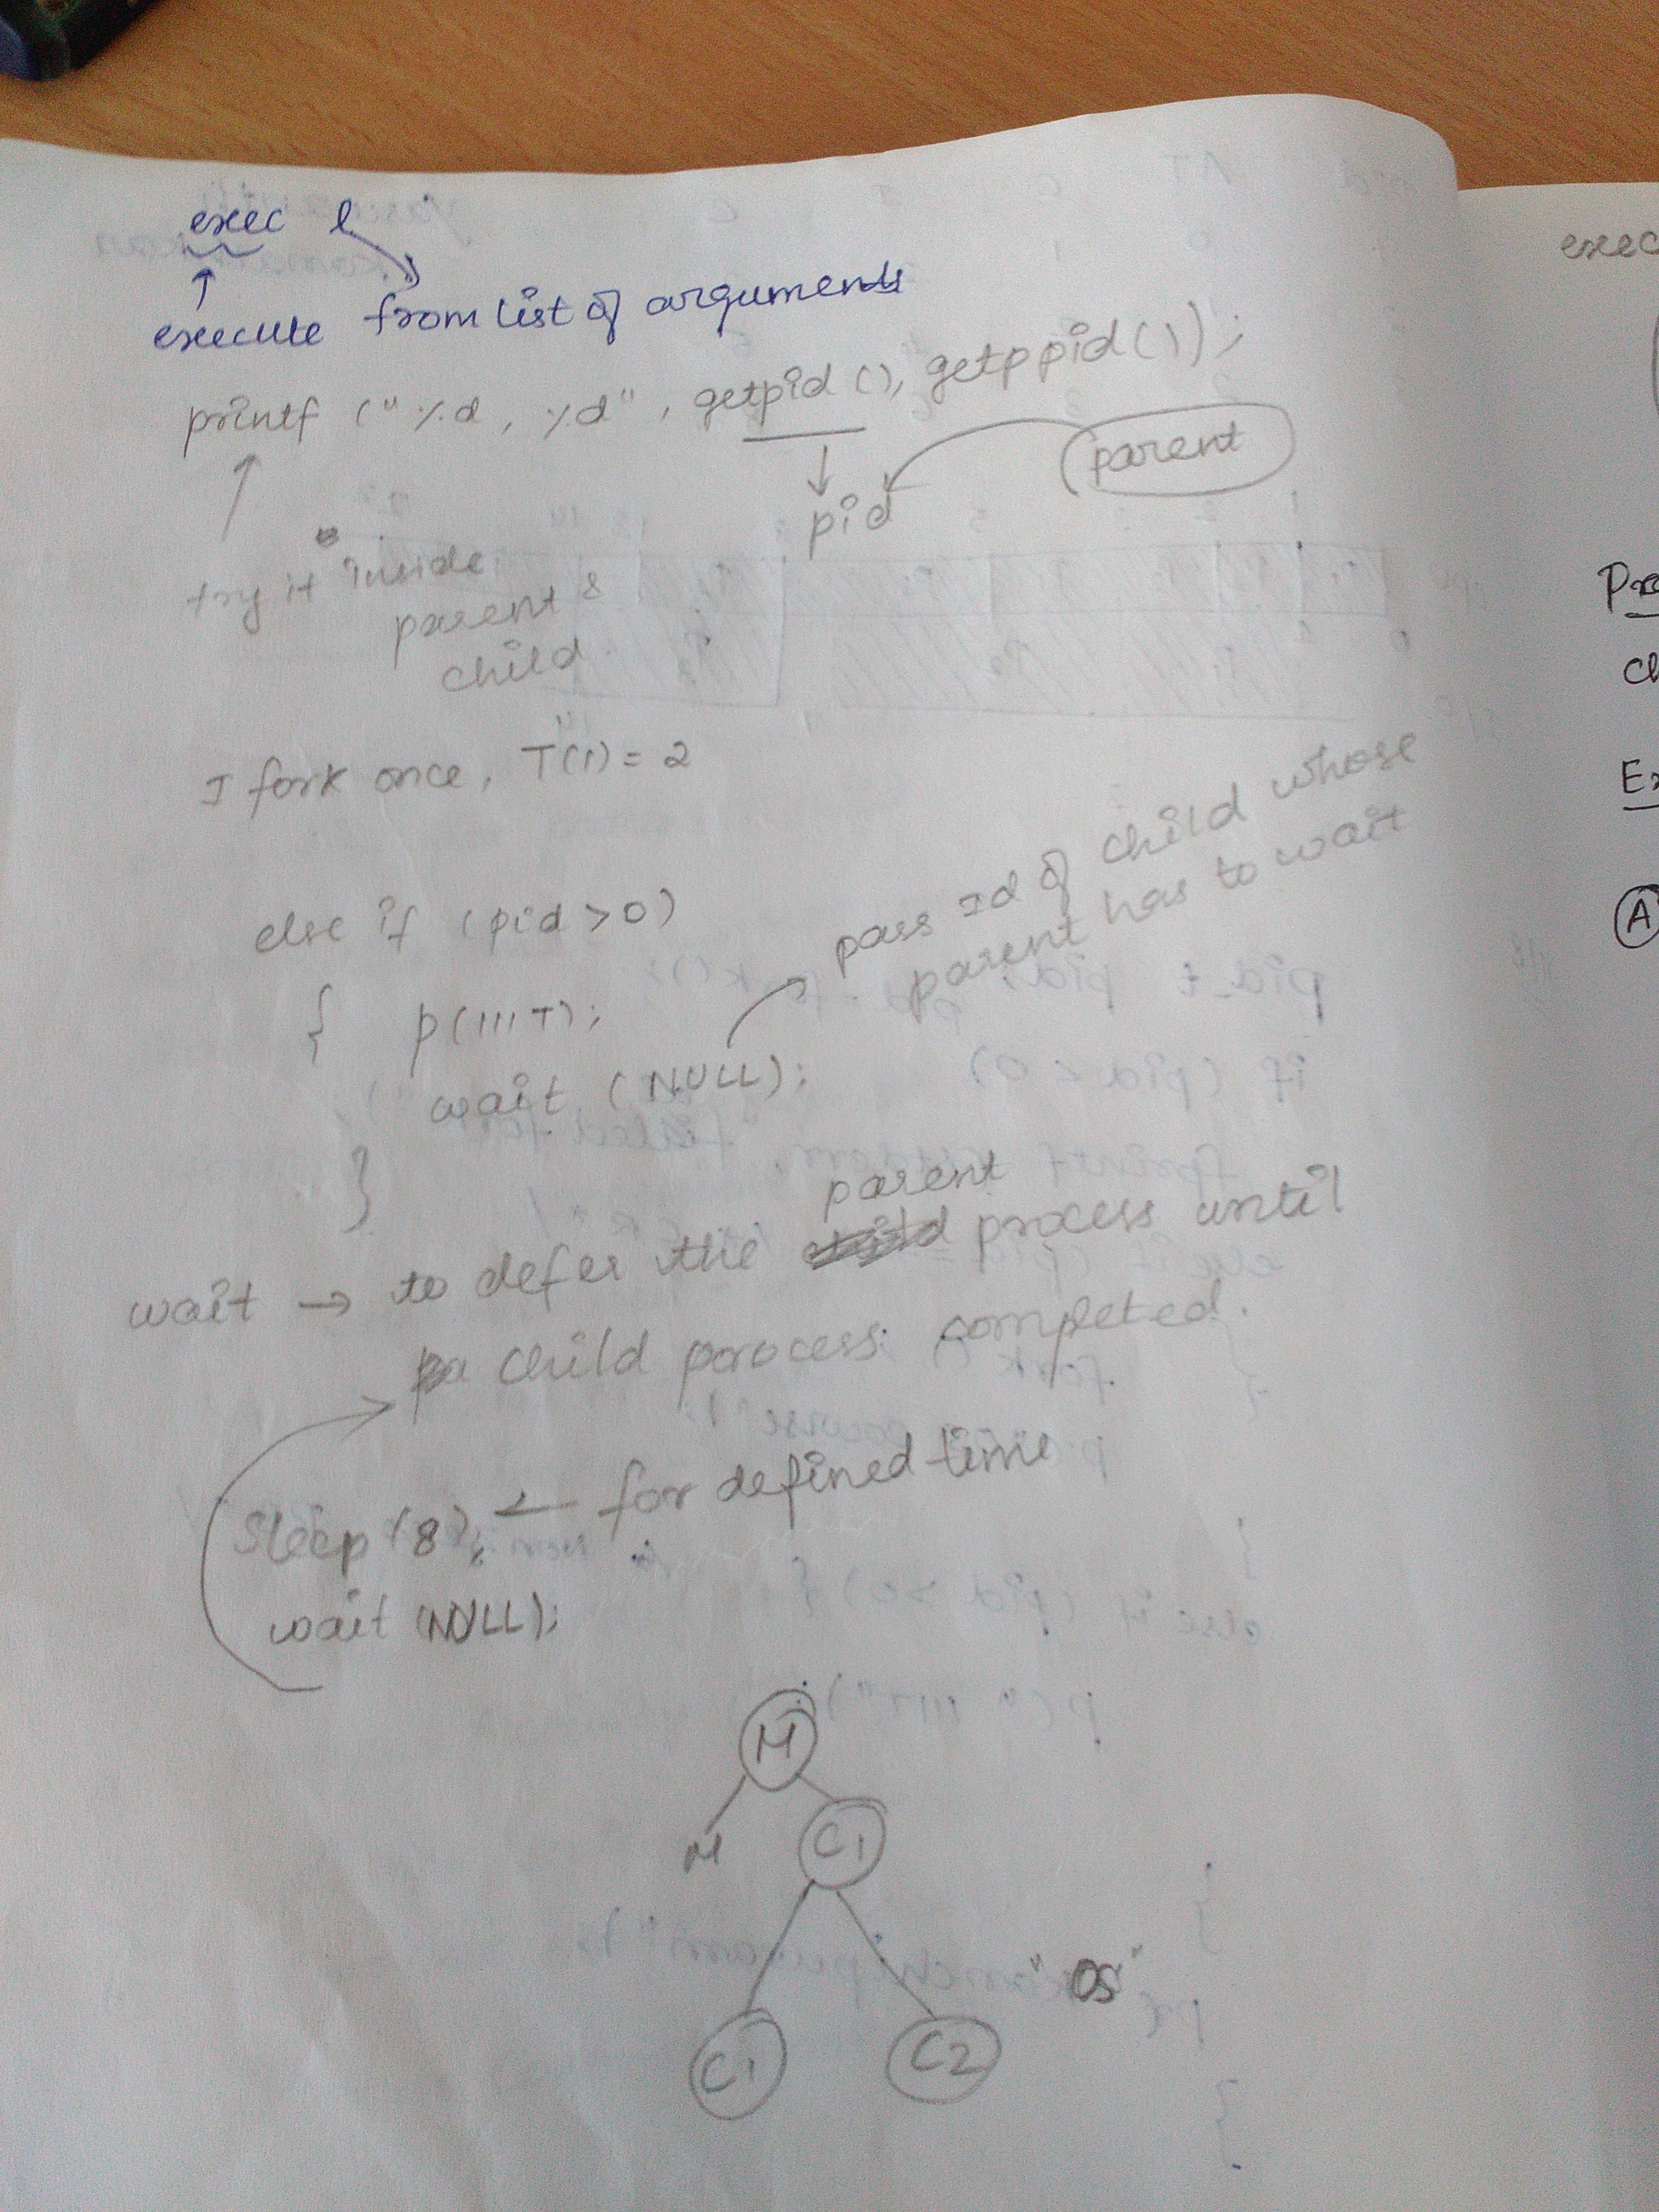 exec l
execute from list of arguments
printf ("%d, %d", getpid(), getppid());
parent
pid
try it inside
parent &
child
I fork once, T(1) = 2
else if (pid > 0)
pass Id of child whose
parent has to wait
{ p(IIIT);
wait (NULL);
}
parent
wait → to defer the process until
a child process completed.
Sleep (8); ← for defined time
wait (NULL);
M
M C1
"OS"
C1 C2
exec
Pro
Ch
Ex
A